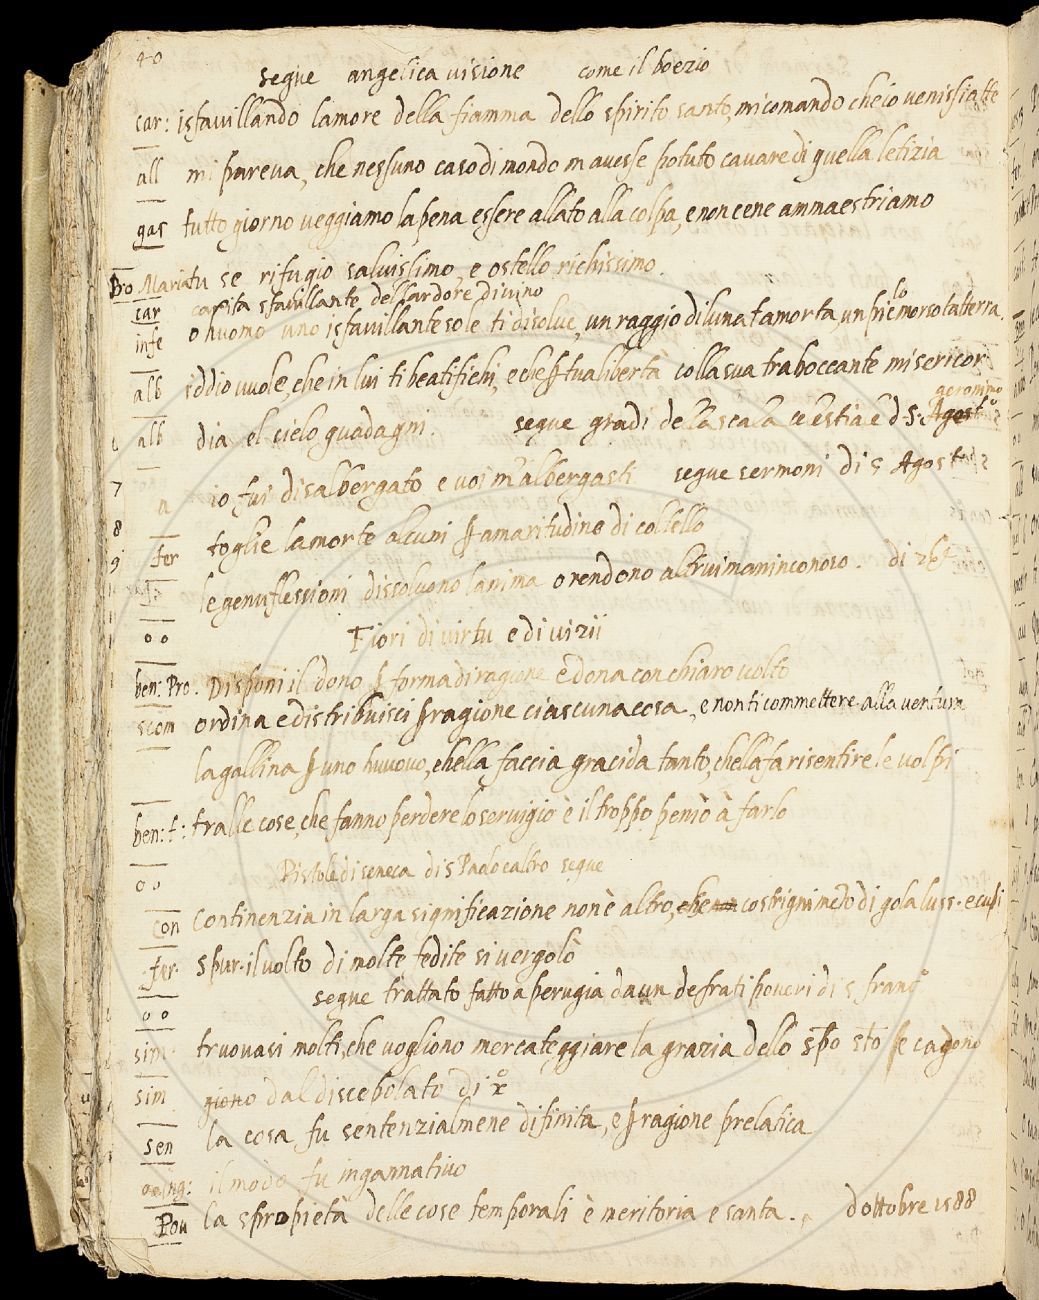 40
segue angelica uisione come il boezio
car: isfauillando lamore della fiamma dello spirito santo, mi comando cheio uenissi atte
all mi pareua, che nessuno caso di mondo mauesse potuto cauare di quella letizia
gas tutto giorno ueggiamo la pena essere allato alla colpa, e non cene ammaestriamo
Pro Maria tu se rifugio saluissimo, e ostello richissimo.
car carita sfauillante dellardore diuino
infe o huomo uno isfauillante sole ti disolue, un raggio di luna tamorta, un piclo morso tatterra,
alb iddio uuole, che in lui ti beatifichi, e che p tua liberta colla sua traboccante misericor
geronimo
alb dia el cielo guadagni. segue gradi della scala celestiale d S. Agosto
7 a io fui disalbergato e uoi m'albergasti segue sermoni di S Agosto
8 toglie la morte alcuni p amaritudine di coltello
9 fer le genuflessioni dissoluono lanima o rendono altrui maninconoso. di 26
o o Fiori di uirtu e di uizii
ben: Pro. Disponi il dono p forma di ragione e dona con chiaro uolto
scom ordina e distribuisci p ragione ciascuna cosa, e non ti commettere alla uentura
la gallina p uno huuouo, chella faccia gracida tanto, chella fa risentire le uolpi
ben: f: tralle cose, che fanno perdere lo seruigio è il troppo penò à farlo
o o Pistole di seneca di s Paolo ealtro segue
con continenzia in larga significazione non è altro, che costrignimeto di gola luss. e cusi
fer. spur. il uolto di molte fedite si uergolò
o o segue trattato fatto a perugia da un de frati poueri di s franco
sim truouasi molti, che uogliono mercateggiare la grazia dello spo sto se cagono
sim giono dal discepolato di xo
sen la cosa fu sentenzialmene difinita, e p ragione prelatica
ing: il modo fu ingannatiuo
Pou la spropietà delle cose temporali è meritoria e santa. dottobre 1588